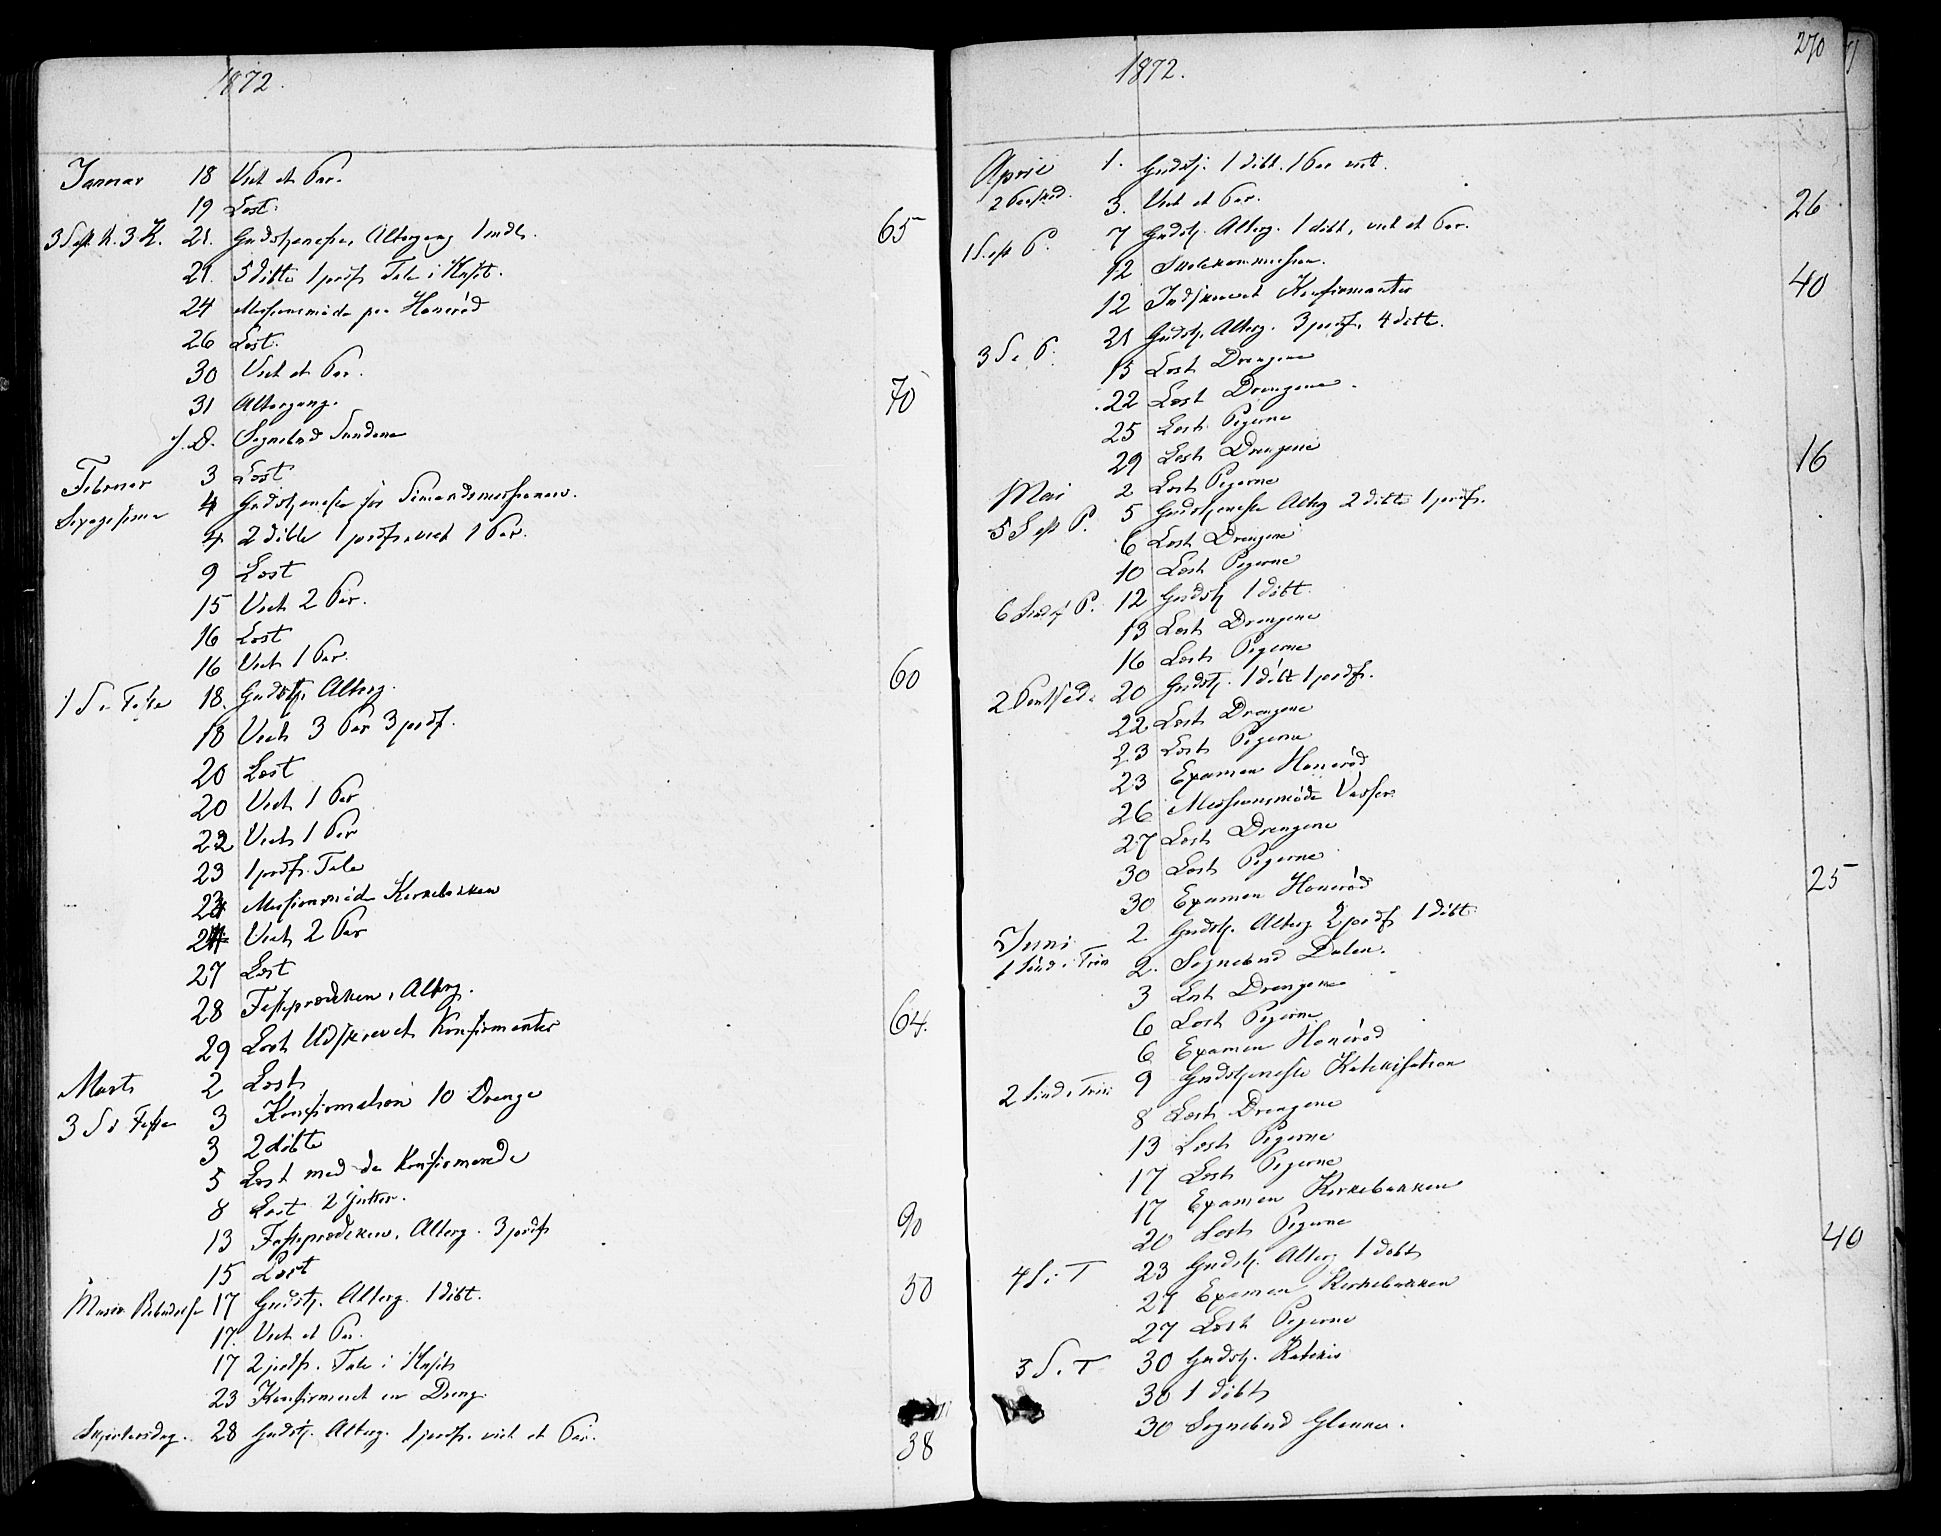 1872.
Januar 18 Viet et Par.
19 Læst.
3 S. eft. H. 3 K. 21. Gudstjeneste, Altergang 1 indl. 65
21. 5 døbte 1 præs. Tale i Huset.
24 Missionsmøde paa Hanerød
26 Læst.
30 Viet et Par.
31 Altergang. 70
S. D. Sognebud Sundene
Februar 3 Læst
Sexagesima 4 Gudstjeneste for Sømandsmissionen.
4 2 døbte 1 præs. viet 1 Par.
9 Læst
15 Viet 2 Par.
16 Læst
16 Viet 1 Par.
1 S. i Faste 18. Gudstj. Alterg. 60
18 Viet 3 Par 3 præs.
20 Læst
20 Viet 1 Par
22 Viet 1 Par
23 1 præs. Tale
24 Missionsmøde Kirkebakken
24 Viet 2 Par
27 Læst
28 Fasteprædiken, Alterg. 64.
29 Læst Udskrevet Konfirmanter
Marts 2 Læst
3 S. i Faste 3 Konfirmation 10 Drenge
3 2 døbte
5 Læst med de Konfirmerede
8 Læst 2 Gutter.
13 Fasteprædiken, Alterg. 3 præs 90
15 Læst
Mariæ Bebudelse 17 Gudstj. Alterg. 1 døbt. 50
17. Viet et Par.
17 2 præs. Tale i Huset
23 Konfirmeret en Dreng.
Skjærtorsdag. 28 Gudstj. Alterg. 1 præs. viet et Par. 38
1872. 270
April 1. Gudstj. 1 døbt. 1 Par viet.
2 Paasked. 3. Viet et Par. 26
1 S. eft P. 7 Gudstj. Alterg. 1 døbt, viet et Par.
12 Skolekommission.
12 Indskrevet Konfirmanter 40
3 S. e P. 21 Gudstj. Alterg. 3 præs. 4 døbt.
15 Læst Drengene
22 Læst Drengene.
25 Læst Pigerne
29 Læst Drengene 16
Mai 2 Læst Pigerne
5 S. eft P. 5 Gudstjeneste Alterg 2 døbte 1 præs.
6 Læst Drengene
10 Læst Pigerne
6 Sønd. e P. 12 Gudstj 1 døbt.
13 Læst Drengene
16 Læst Pigerne
2 Pintsed. 20 Gudstj. 1 døbt 1 præs.
22 Læst Drengene
23 Læst Pigerne
23 Examen Hanerød
26 Missionsmøde Vasser.
27 Læst Drengene
30 Læst Pigerne 25
30 Examen Hanerød
Juni 2 Gudstj. Alterg 2 præs 1 døbt
1 Sønd. e Trin 2. Sognebud Dalen.
3 Læst Drengene
6 Læst Pigerne
6 Examen Hanerød
2 Sønd. e Trin 9 Gudstjeneste Katekisation
8 Læst Drengene
13 Læst Pigerne
17 Læst Pigerne
17 Examen Kirkebakken
20 Læst Pigerne 40
4 S. e T 23 Gudstj. Alterg 1 døbt
27 Examen Kirkebakken
27 Læst Pigerne
5 S. e T 30 Gudstj. Katekis
30 1 døbt
30 Sognebud Glenne.